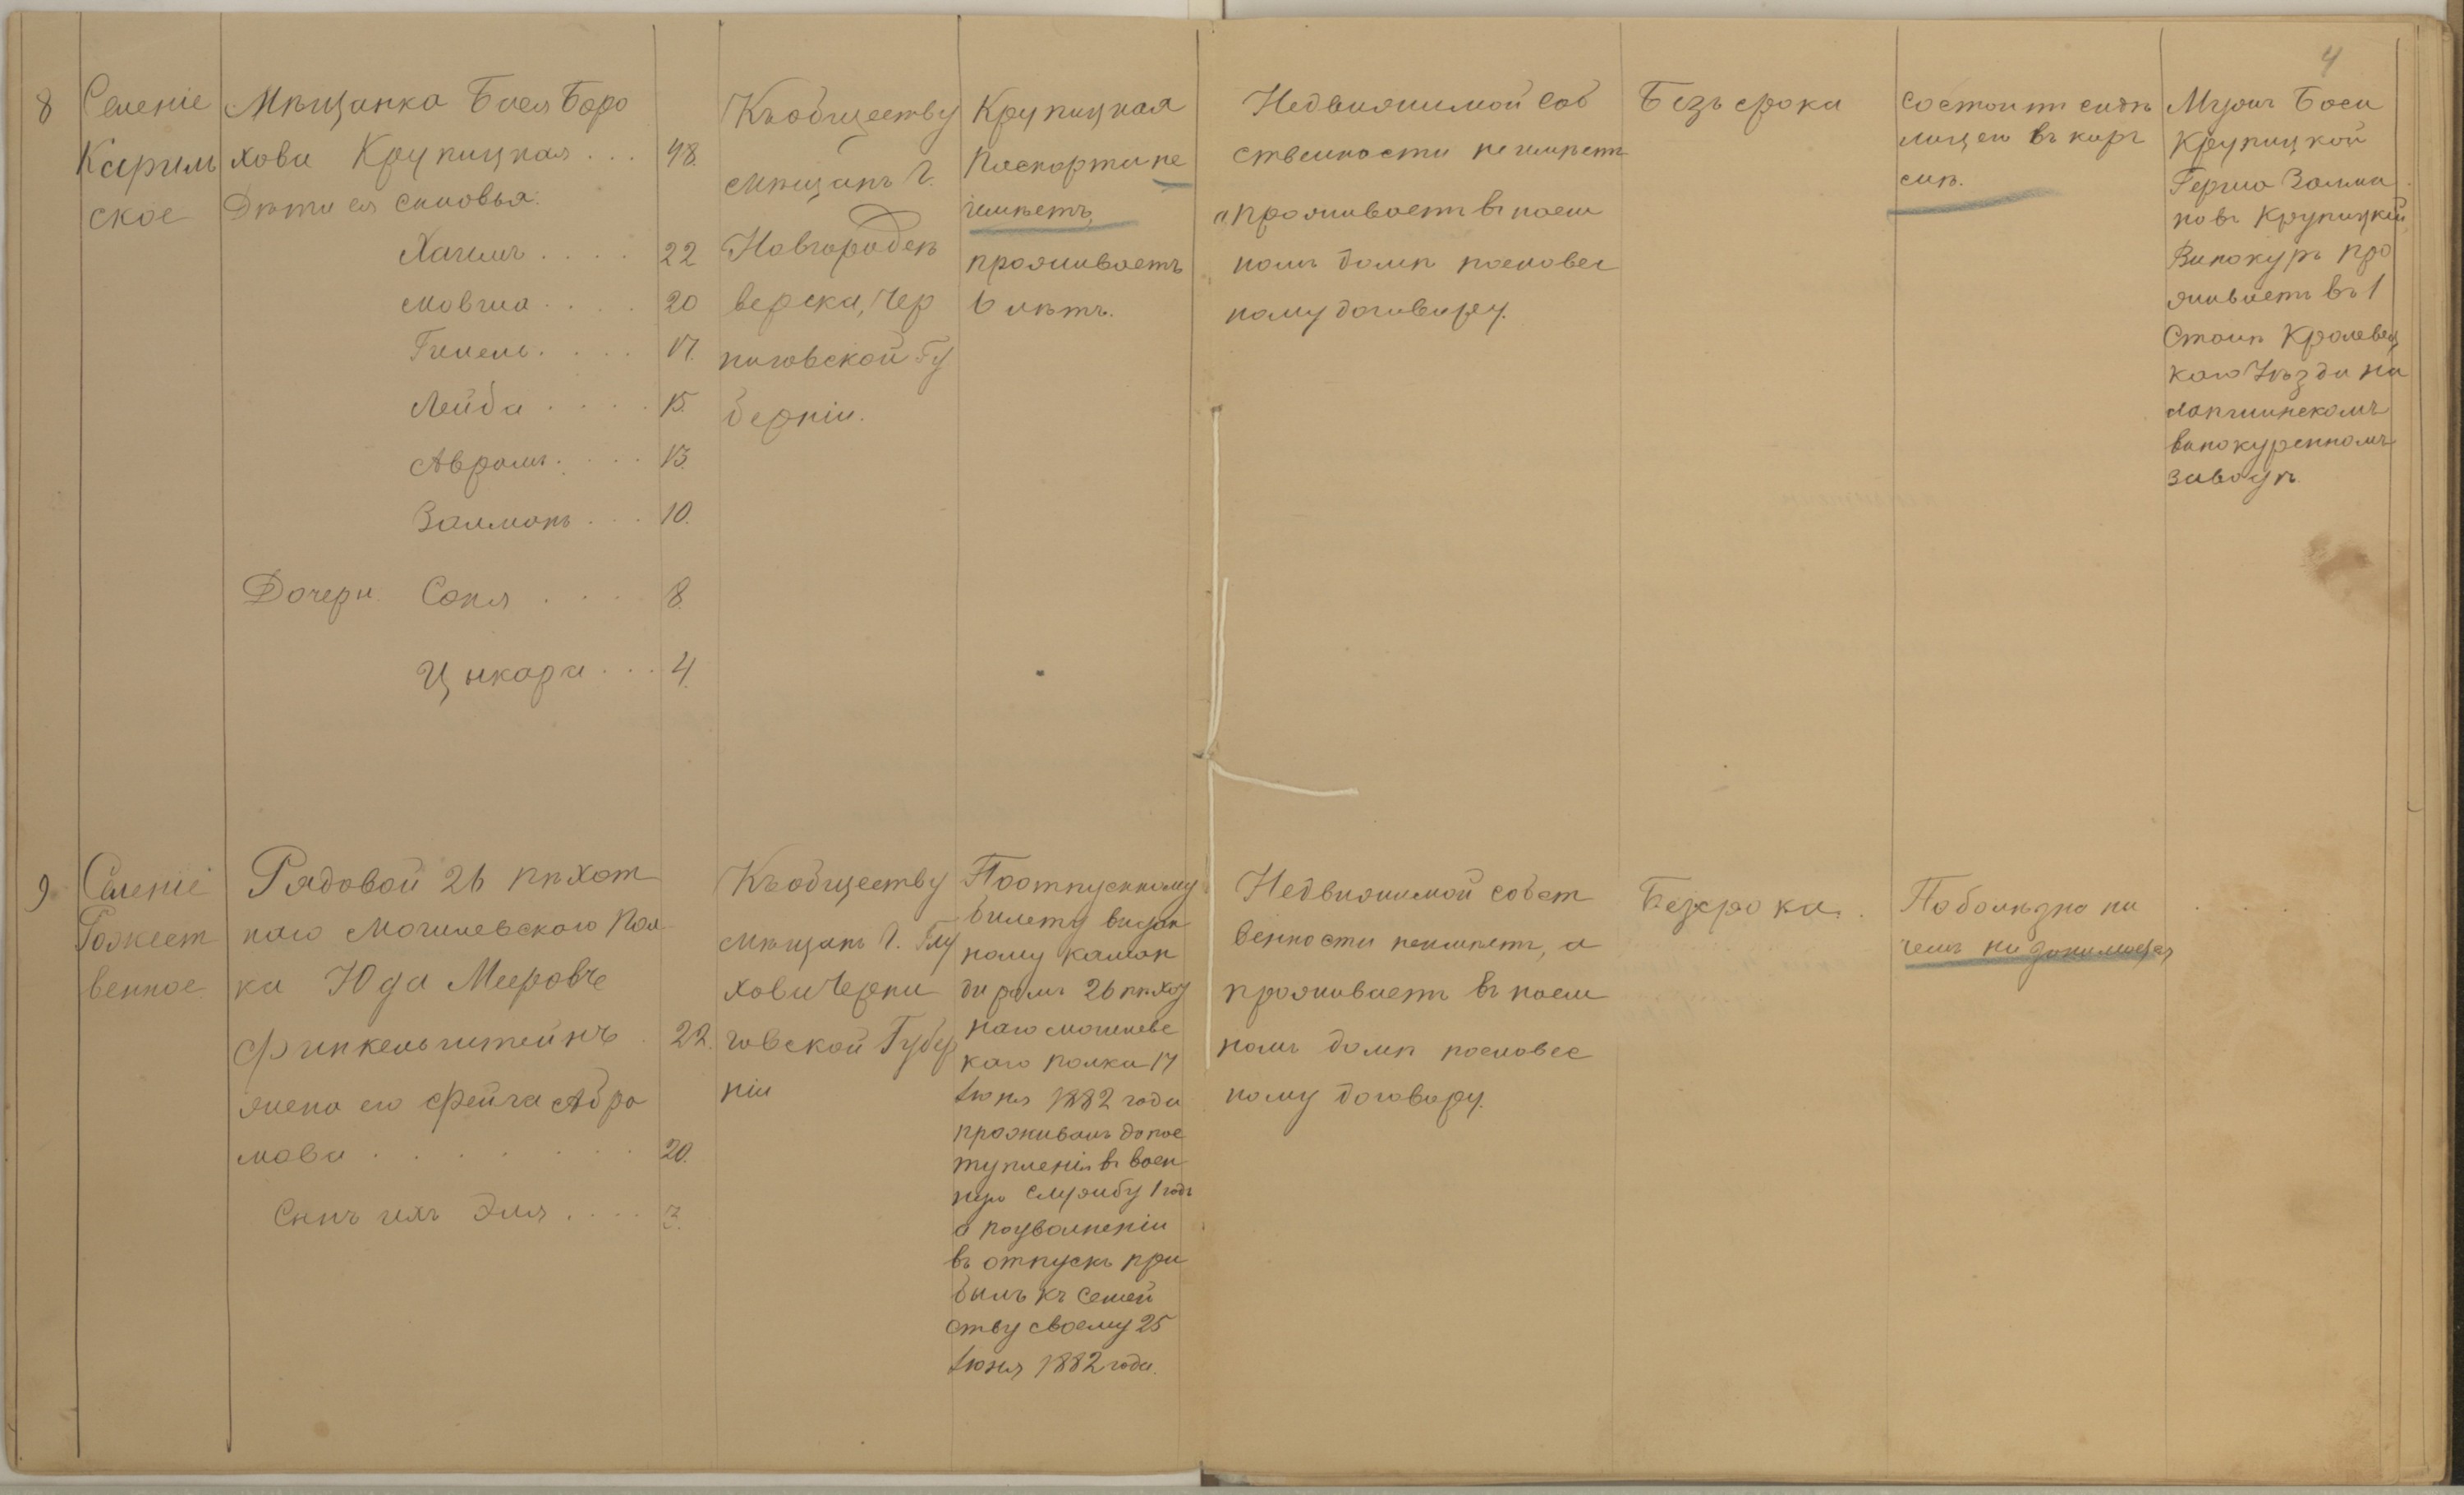 4
8
Селеніе
Карим
ское
Мѣщанка Бася Боро
хова Крупицкая . . . 48.
Дѣти ея сыновья:
Хаимъ . . . . 22
Мовша . . . . 20
Гимель . . . . 17.
Лейба . . . . 15.
Абрамъ . . . . 13.
Залманъ . . . 10.
Дочери Соня . . . . 8.
Цыкара . . . 4.
Къ обществу
мѣщанъ г.
Новгородсѣ
верска, Чер
ниговской Гу
берніи.
Крупицкая
паспорта не
имѣетъ,
проживаетъ
6 лѣтъ.
Недвижимой соб
ственности не имѣетъ
а проживаетъ въ наем
номъ домѣ пословес
ному договору.
Безъ срока
Состоитъ сидѣ
лицею въ корч
мѣ.
Мужъ Баси
Крупицкой
Герша Залма
новъ Крупицкій
Винокуръ про
живаетъ въ 1
Станѣ Кролевец
каго Уѣзда на
винокуренномъ
заводѣ
9
Селеніе
Рожест
венное
Рядовой 26 пѣхот
наго Могилевского Пол
ка Юда Мееровъ
Финкельштейнъ . 22.
жена его Фейга Абра
мова . . . . . . . 20.
Сынъ ихъ Эля . . . . 3.
Къ обществу
мѣщанъ г. Глу
хова Черни
говской Губер
ніи
По отпускному
билету выдан
ному каман
диромъ 26 пѣхот
наго Могилевс
каго полка 17
Іюня 1882 года
проживалъ до пос
тупленія въ воен
ную службу 1 годъ
а по уволненіи
въ отпускъ при
былъ къ семей
ству своему 25
Іюня 1882 года.
Недвижимой собст
венности неимѣетъ, а
проживаетъ въ наем
номъ домѣ пословес
ному договору.
Безсрока .
По болѣзни ни
чемъ не занимается
. . . .